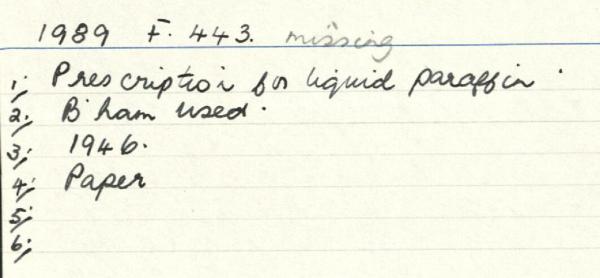 1989 F. 443. missing
1; Prescription for liquid paraffin.
2; B'ham used.
3; 1946.
4; Paper
5;
6;